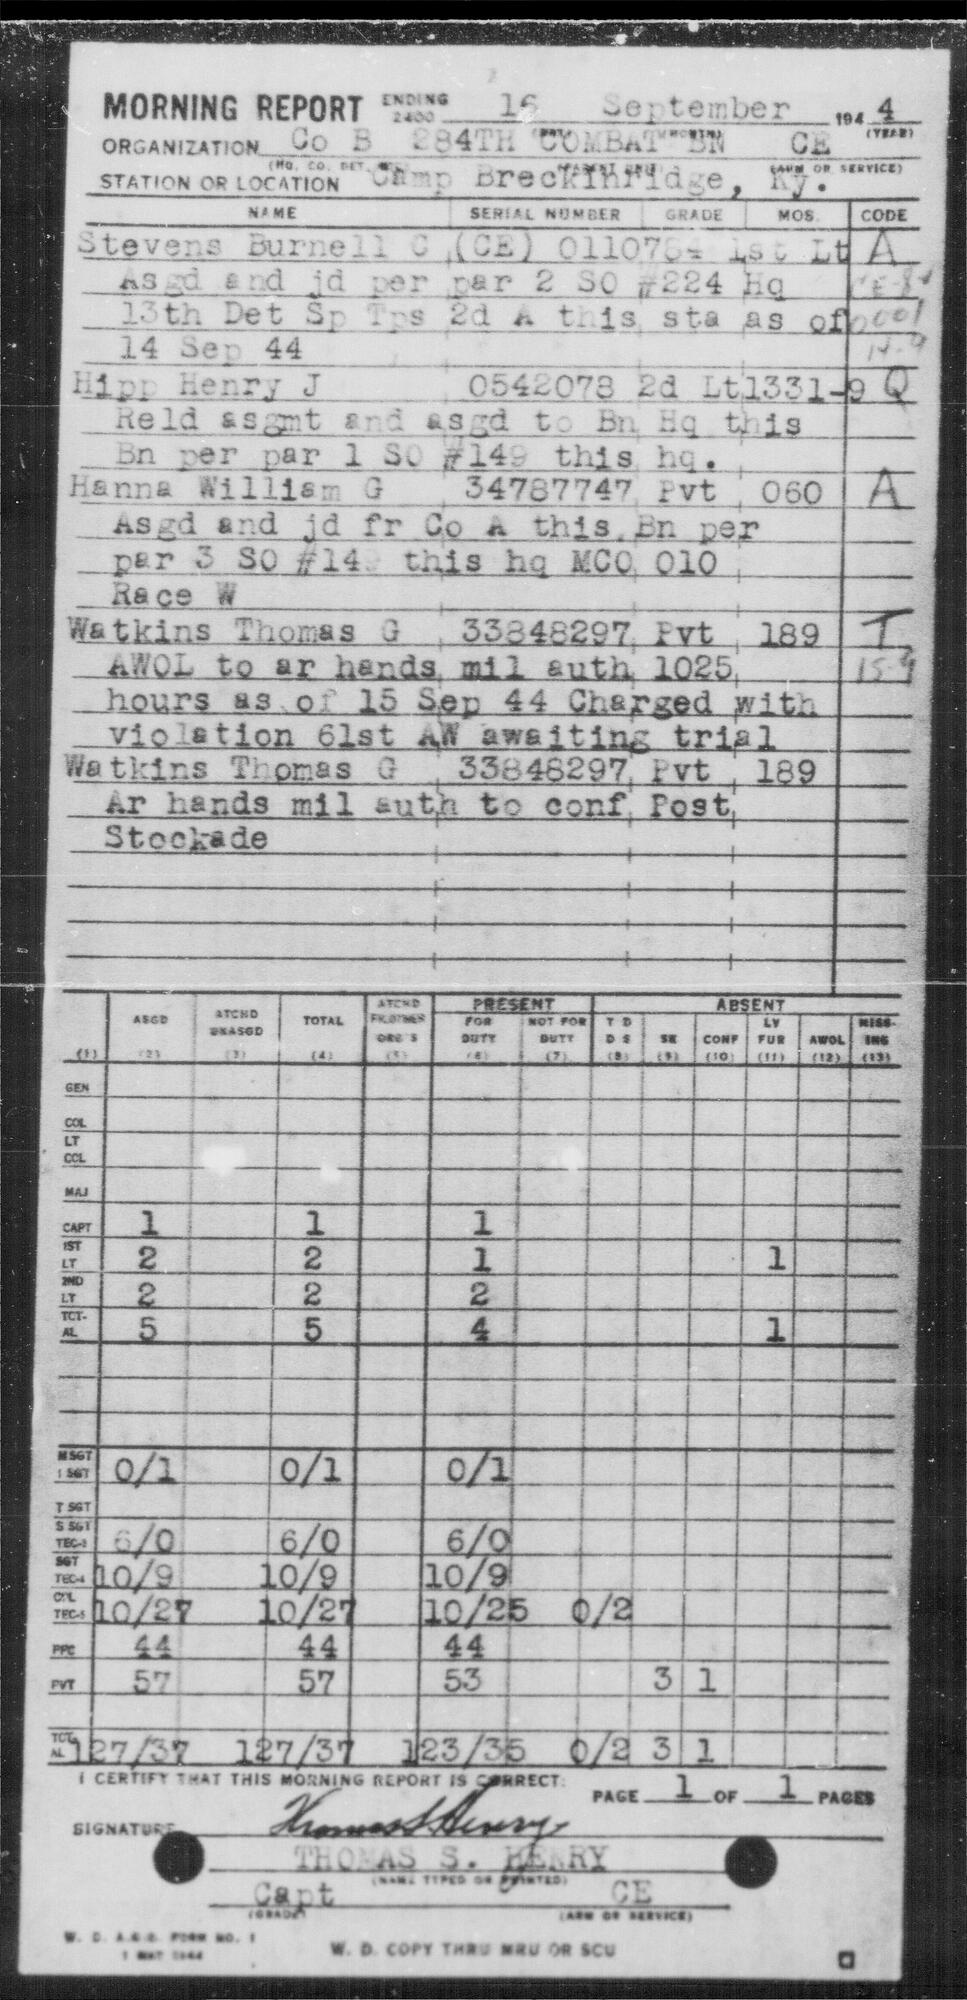 MORNING REPORT ENDING 2400 16 September 194 4
ORGANIZATION Co B 284TH COMBAT BN CE
STATION OR LOCATION Camp Breckinridge, Ky.
NAME SERIAL NUMBER GRADE MOS. CODE
Stevens Burnell C (CE) 1st Lt A
Asgd and jd per par 2 SO #224 Hq
13th Det Sp Tps 2d A this sta as of
14 Sep 44 14-9
Hipp Henry J 0542078 2d Lt 1331-9 Q
Reld asgmt and asgd to Bn Hq this
Bn per par 1 SO #149 this hq.
Hanna William G 34787747 Pvt 060 A
Asgd and jd fr Co A this Bn per
par 3 SO #14 this hq MCO 010
Race W
Watkins Thomas G 33848297 Pvt 189 T
AWOL to ar hands mil auth 1025 15-9
hours as of 15 Sep 44 Charged with
violation 61st AW awaiting trial
Watkins Thomas G 33848297 Pvt 189
Ar hands mil auth to conf Post
Stockade
PRESENT ABSENT
ASGD ATCHD UNASGD TOTAL ATCHD FR OTHER ORG S FOR DUTY NOT FOR DUTY T D D S SK CONF LV FUR AWOL MISS-ING
(1) (2) (3) (4) (5) (6) (7) (8) (9) (10) (11) (12) (13)
GEN
COL
LT COL
MAJ
CAPT 1 1 1
1ST LT 2 2 1 1
2ND LT 2 2 2
TOT-AL 5 5 4 1
M SGT 1 SGT 0/1 0/1 0/1
T SGT
S SGT TEC-3 6/0 6/0 6/0
SGT TEC-4 10/9 10/9 10/9
CPL TEC-5 10/27 10/27 10/25 0/2
PFC 44 44 44
PVT 57 57 53 3 1
TOT-AL 127/37 127/37 123/35 0/2 3 1
I CERTIFY THAT THIS MORNING REPORT IS CORRECT:
PAGE 1 OF 1 PAGES
SIGNATURE Thomas S Henry
THOMAS S. HENRY
(NAME TYPED OR PRINTED)
Capt CE
(GRADE) (ARM OR SERVICE)
W. D. A.G.O. FORM NO. 1
1 MAY 1944
W. D. COPY THRU MRU OR SCU